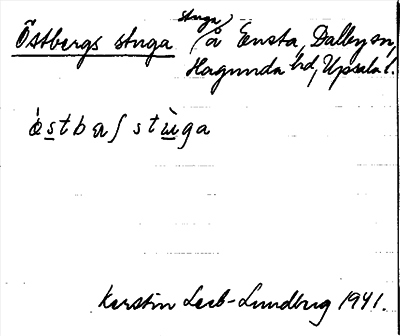 Östbergs stuga (stuga) å Ensta, Dalby sn,
Hagunda hd, Upsala l.
ó̤stbaʃ stùga
Kerstin Leeb-Lundberg 1941.